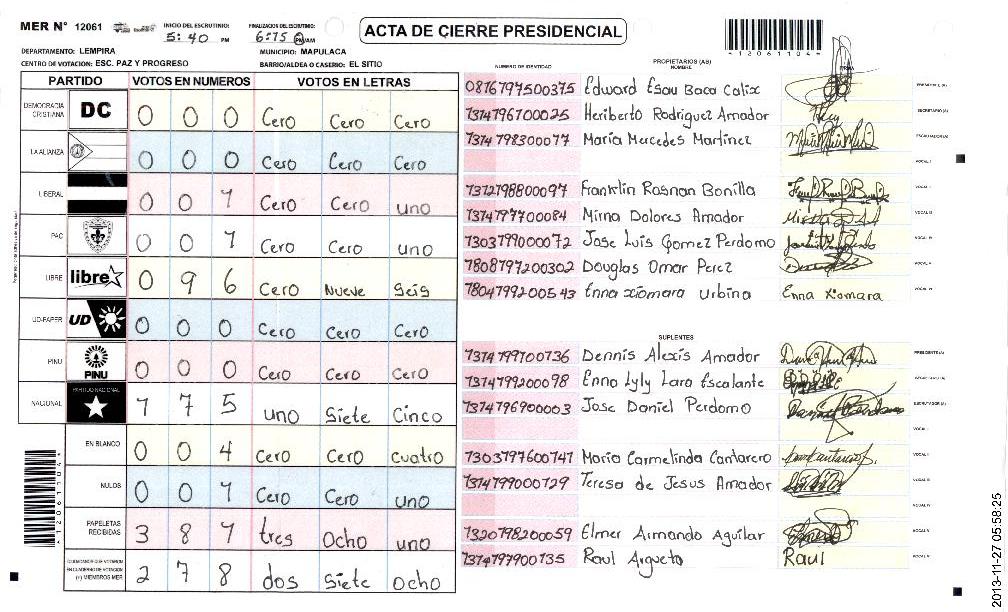 MER N° 12061 INICIO DEL ESCRUTINIO: FINALIZACION DEL ESCRUTINIO: ACTA DE CIERRE PRESIDENCIAL
5:40 PM 6:15 PM/AM *1206110 4*
DEPARTAMENTO: LEMPIRA MUNICIPIO: MAPULACA
CENTRO DE VOTACION: ESC. PAZ Y PROGRESO BARRIO/ALDEA O CASERIO: EL SITIO
PARTIDO VOTOS EN NUMEROS VOTOS EN LETRAS
DEMOCRACIA CRISTIANA DC 0 0 0 Cero Cero Cero
LA ALIANZA 0 0 0 Cero Cero Cero
LIBERAL 0 0 1 Cero Cero uno
PAC 0 0 1 Cero Cero uno
LIBRE libre 0 9 6 Cero Nueve Seis
UD-FAPER UD 0 0 0 Cero Cero Cero
PINU PINU 0 0 0 Cero Cero Cero
NACIONAL PARTIDO NACIONAL 1 7 5 uno Siete Cinco
EN BLANCO 0 0 4 Cero Cero cuatro
NULOS 0 0 1 Cero Cero uno
PAPELETAS RECIBIDAS 3 8 1 tres Ocho uno
CIUDADANOS QUE VOTARON EN CUADERNO DE VOTACION (+) MIEMBROS MER 2 7 8 dos Siete Ocho
NUMERO DE IDENTIDAD PROPIETARIOS (AS) NOMBRE FIRMA
0816197500375 Edward Esau Baca Calix PRESIDENTE (A)
1314196700025 Heriberto Rodriguez Amador SECRETARIO (A)
1314198300077 Maria Mercedes Martinez ESCRUTADOR (A)
VOCAL I
1312198800097 Franklin Rosnan Bonilla
1314197700084 Mirna Dolores Amador
1303199000072 Jose Luis Gomez Perdomo
1808197200302 Douglas Omar Perez
1804199200543 Enna xiomara Urbina Enna Xiomara
SUPLENTES
1314199100136 Dennis Alexis Amador PRESIDENTE (A)
1314199200098 Enna Lyly Lara Escalante SECRETARIO (A)
1314196900003 Jose Daniel Perdomo ESCRUTADOR (A)
VOCAL I
1303197600141 Maria Carmelinda Cantarero
1314199000129 Teresa de Jesus Amador
1320198200059 Elmer Armando Aguilar
1314197900135 Raul Argueta Raul
2013-11-27 05:58:25